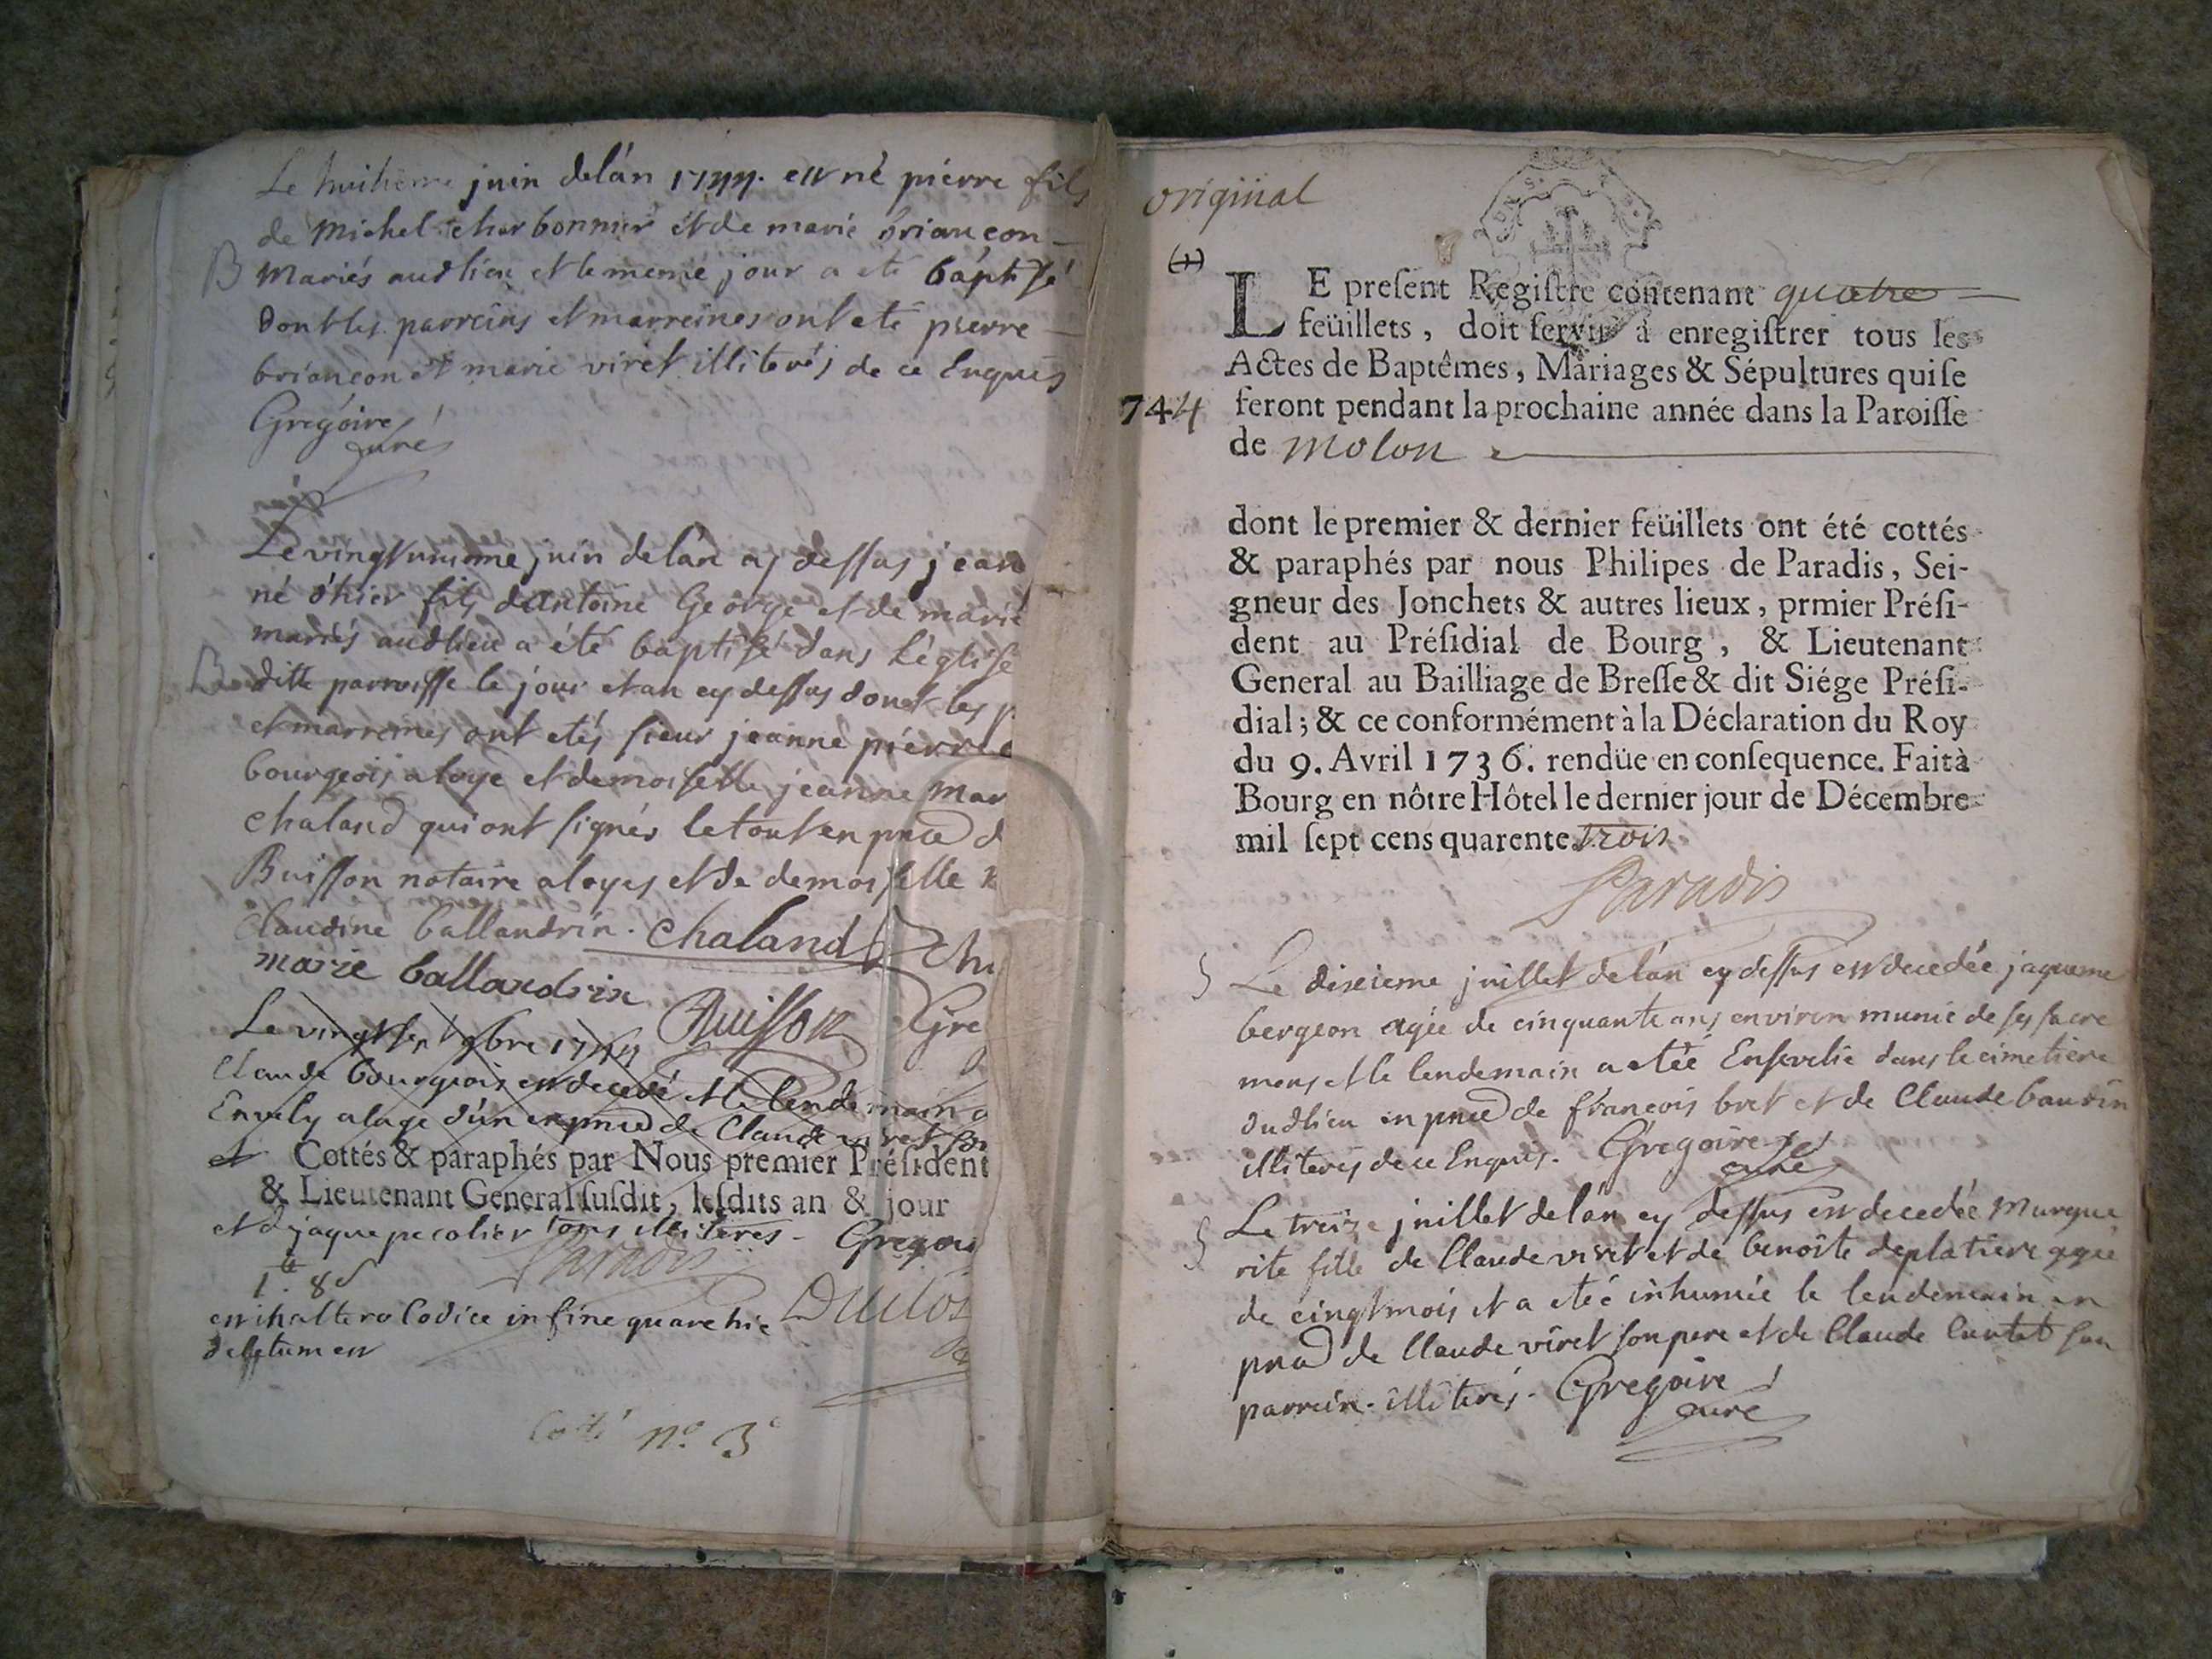 Le huitieme juin de lán 1744. est né pierre fils
de Michel charbonnier et de marie briancon
B Mariés audlieu et le meme jour a eté baptisé
dont les parreins et marreines ont eté pierre
briancon et marie viret illiterés de ce Enquis
Gregoire
curé
Le vingtunieme juin de lán cy dessus jean
né d'hier fils dantoine George et de marie
mariés audlieu a été baptisé dans L'église
B ditte parroisse le jour et an cy dessus dont les p
et marreines ont etés sieur jeanne pierre
bourgeois a loye et demoiselle jeanne Mar
chaland qui ont signés le tout en pnce d
Buisson notaire a loyes et de demoiselle
Claudine ballandrin. Chaland Cha
marie ballandrin Buisson Gre
Le vingt 9bre 1744
Claude bourgeois est decedé et le lendemain a
Envely a lage d'un en pnce de Claude viret
et Cottés & paraphés par Nous premier Président
& Lieutenant General susdit, lesdits an & jour
et de jaque pecolier tous illiteres - Gregoi
Paradis
1 . 8d
est in altero Codice in fine quare hic Duclos
deletum est
Cotté n.º 3e
original
(1)
LE present Registre contenant quatre
feüillets, doit servir à enregistrer tous les
Actes de Baptêmes, Mariages & Sépultures qui se
744 feront pendant la prochaine année dans la Paroisse
de Molon
dont le premier & dernier feüillets ont été cottés
& paraphés par nous Philipes de Paradis, Sei-
gneur des Jonchets & autres lieux, prmier Prési-
dent au Présidial de Bourg, & Lieutenant
General au Bailliage de Bresse & dit Siége Prési-
dial; & ce conformément à la Déclaration du Roy
du 9. Avril 1736. rendüe en consequence. Fait à
Bourg en nôtre Hôtel le dernier jour de Décembre
mil sept cens quarente trois
Paradis
S Le dixieme juillet de lán cy dessus est decedée jaqueme
bergeon agée de cinquante ans environ munie de ses sacre
mens et le lendemain a etée Ensevelie dans le cimetiere
dudlieu en pnce de francois bret et de Claude baudin
illiterés de ce Enquis. Gregoire
curé
S Le treize juillet de lán cy dessus est decedée Margue
rite fille de Claude viret et de benoite deplatiere agée
de cinqt mois et a etée inhumée le lendemain en
pnce de Claude viret son pere et de Claude Cuntet son
parrein. illiterés. Gregoire
curé